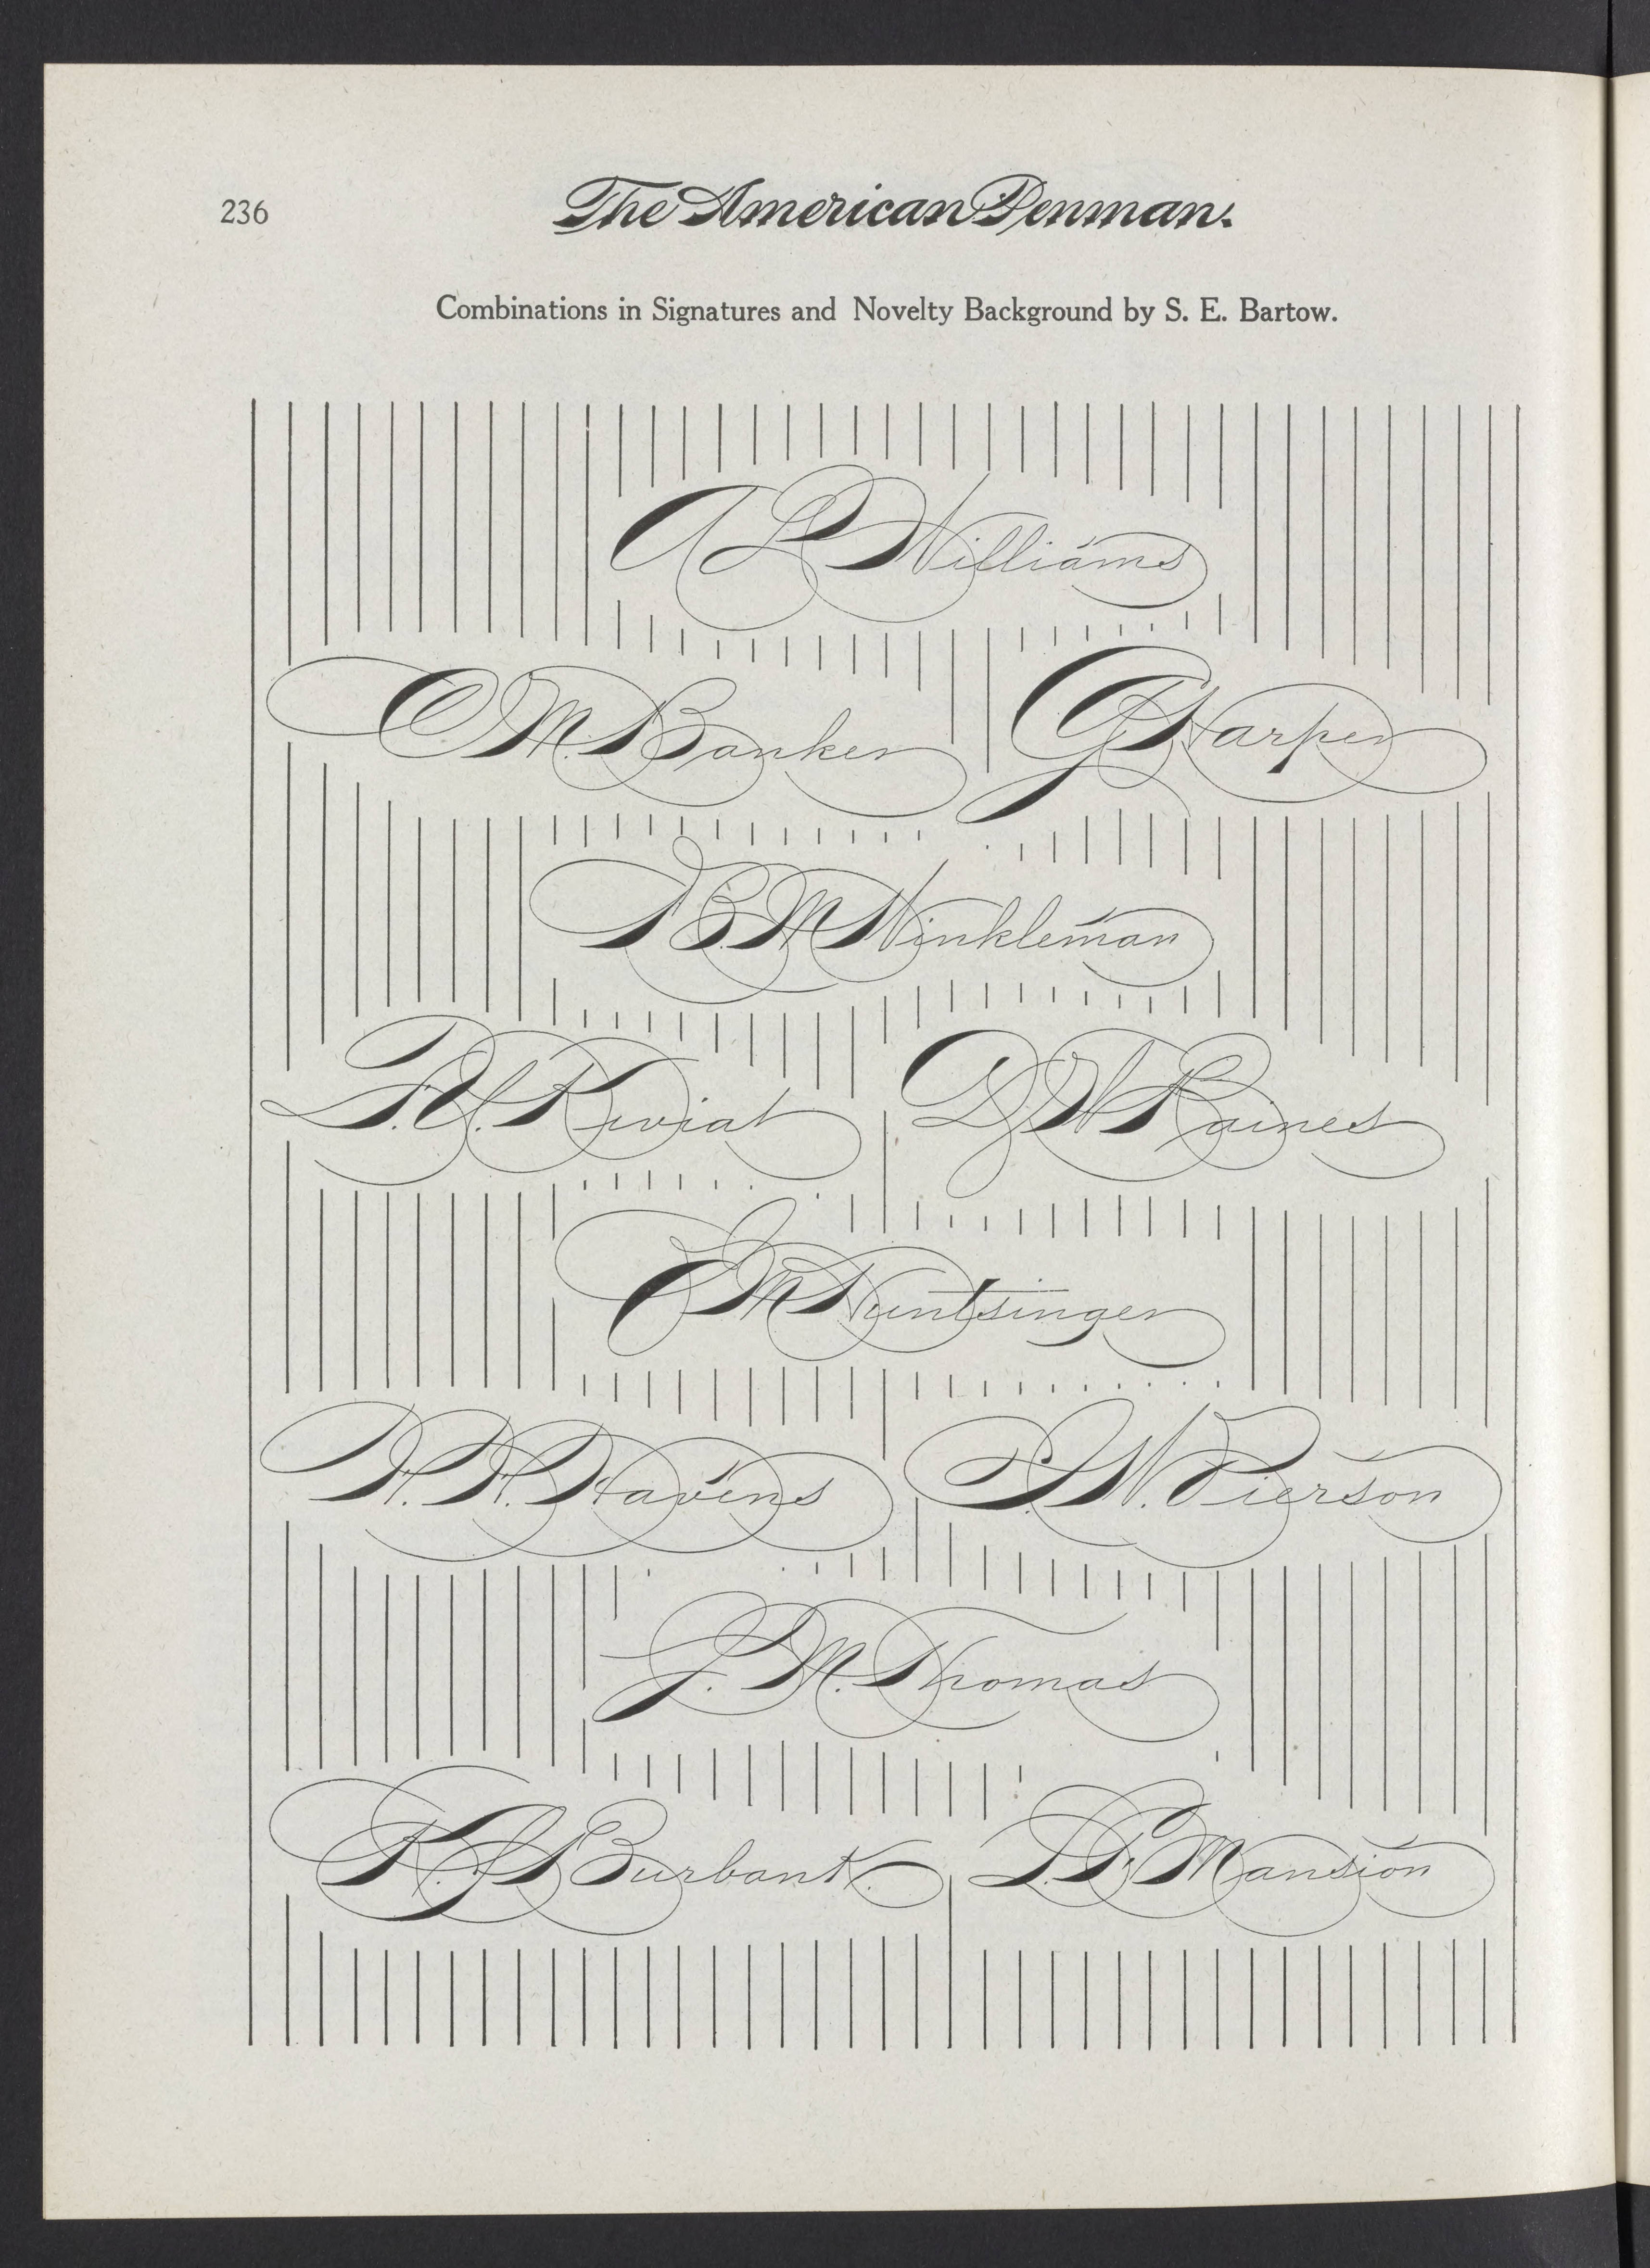 236
The American Penman.
Combinations in Signatures and Novelty Background by S. E. Bartow.
A L Williams
C M. Banker
G F Harper
S B. M Winkleman
T. U. Kiviat
D. W Raines
C M Huntsinger
H. H. Havens
S. W. Pierson
J. M. Thomas
R. G S Burbank.
L. P. Mansion